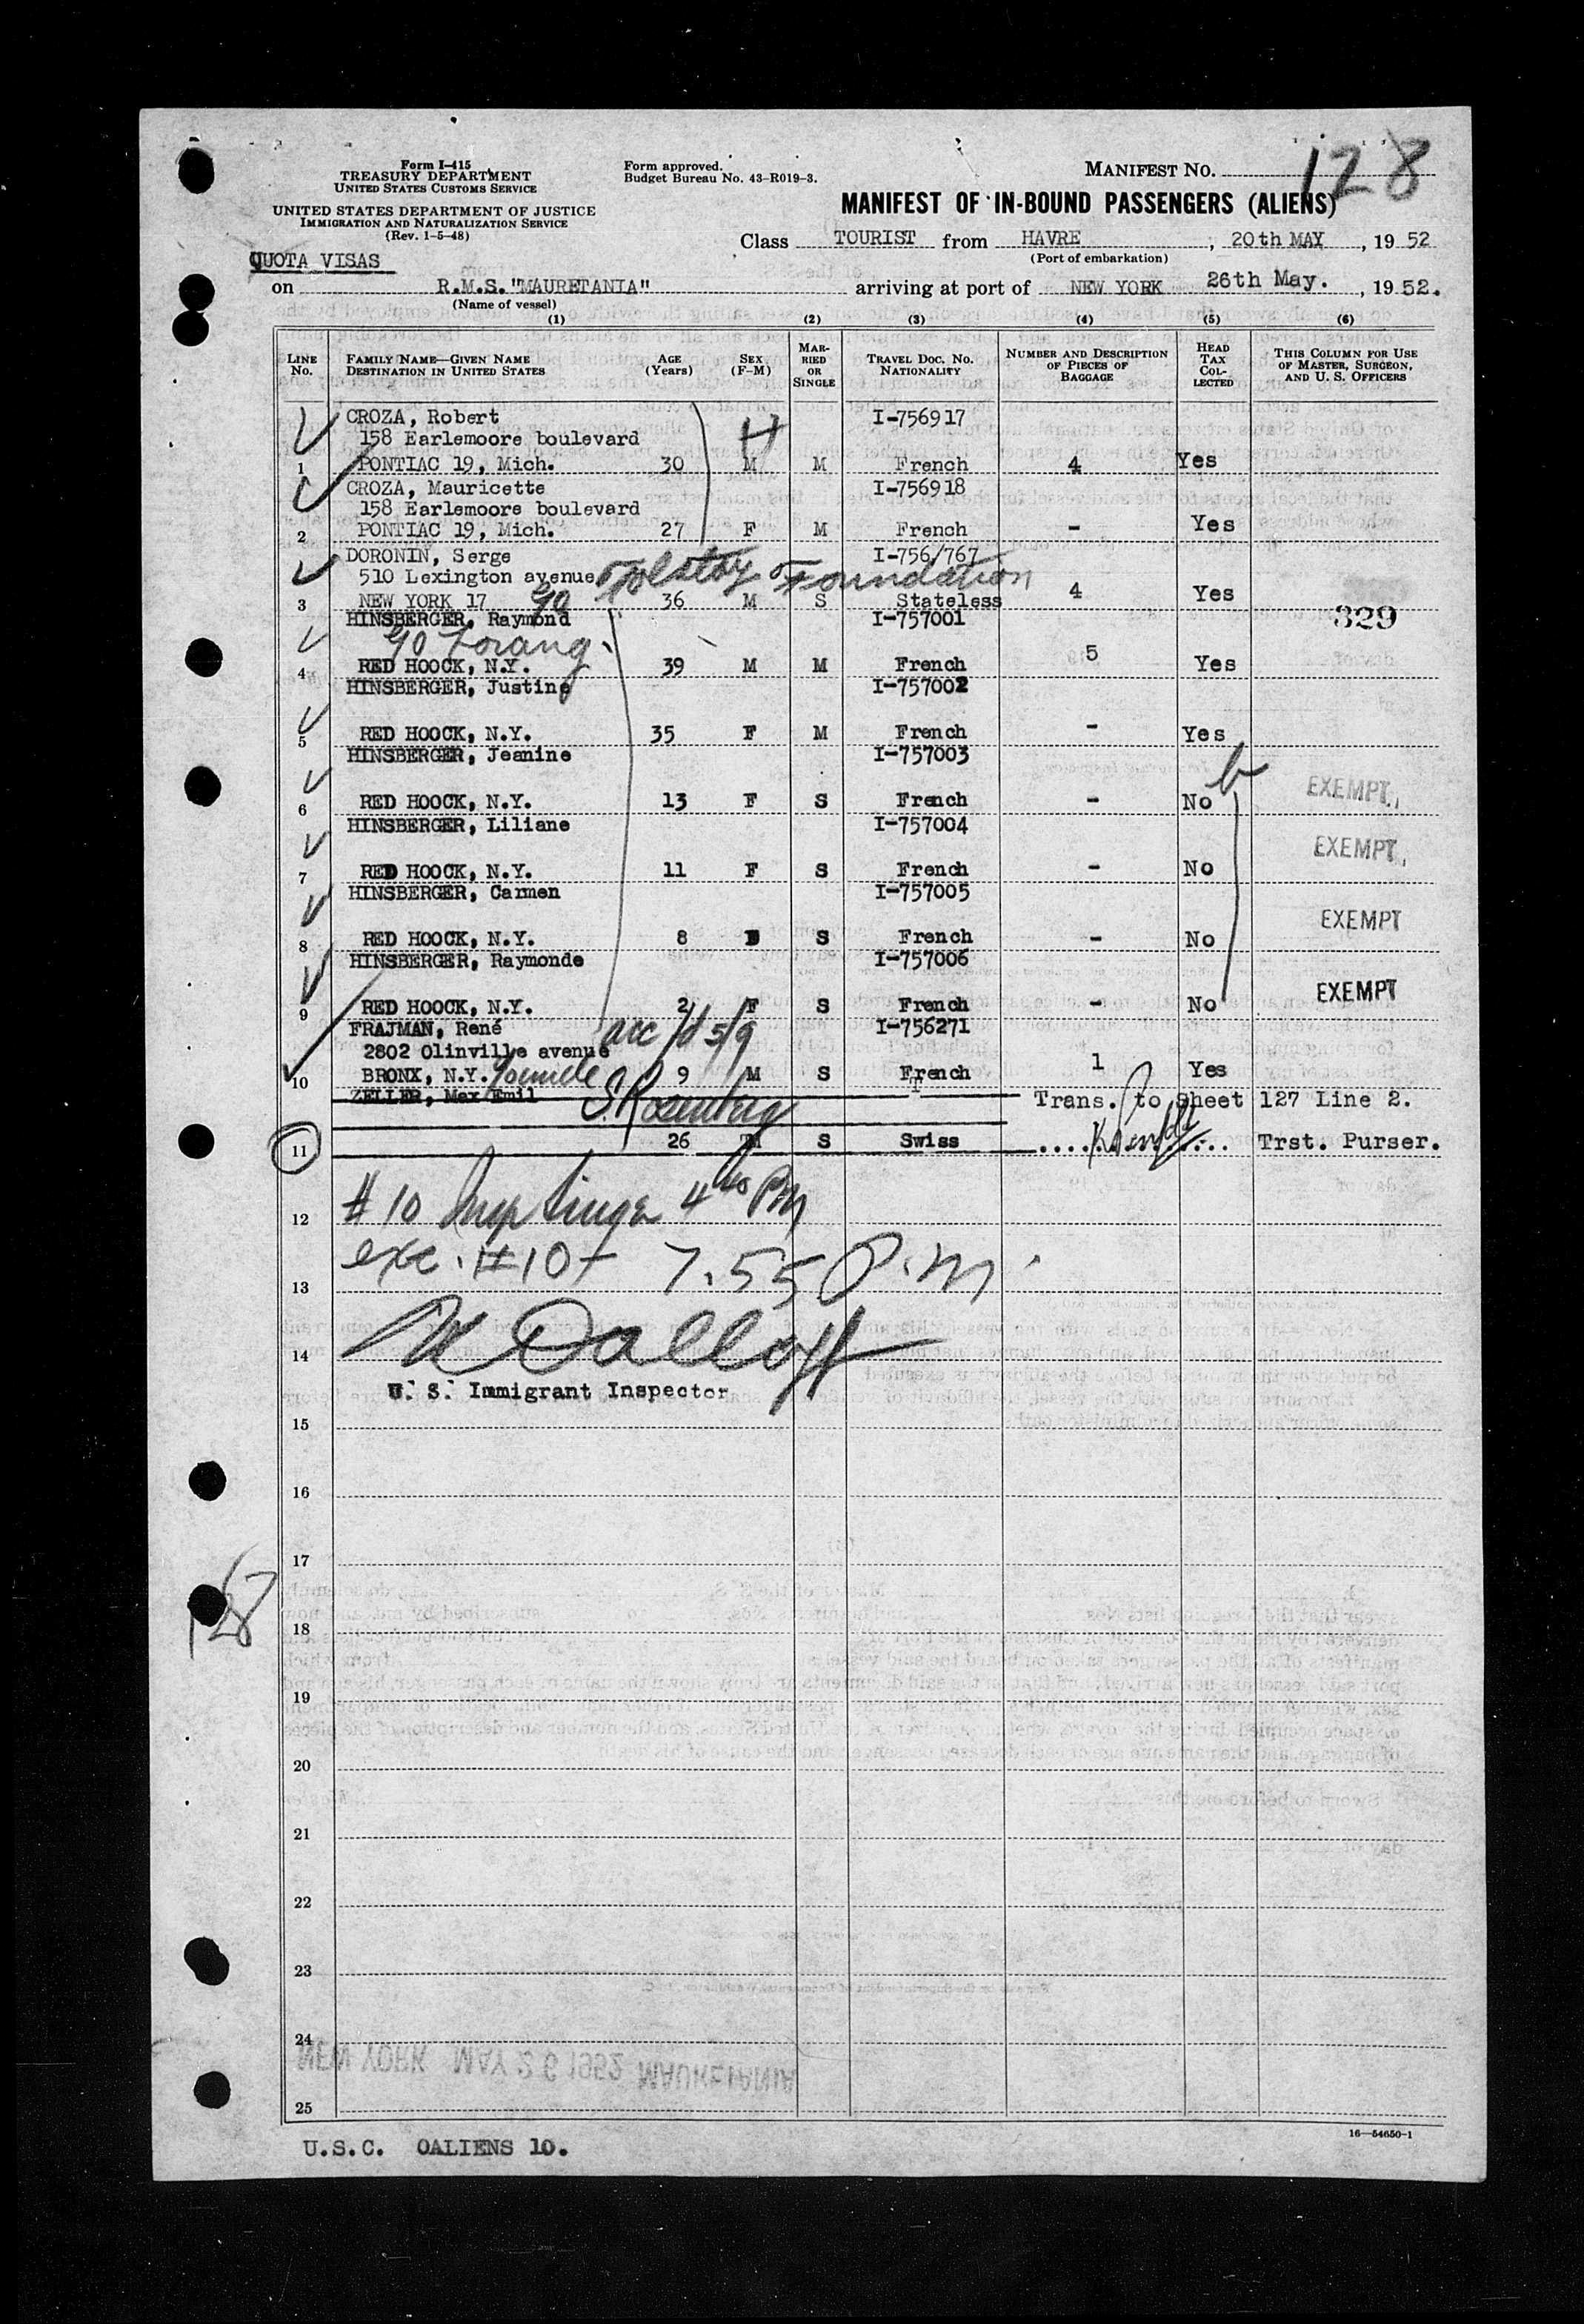 128
Form I-415
TREASURY DEPARTMENT
UNITED STATES CUSTOMS SERVICE
UNITED STATES DEPARTMENT OF JUSTICE
IMMIGRATION AND NATURALIZATION SERVICE
(Rev. 1-5-48)
Form approved.
Budget Bureau No. 43-R019-3.
MANIFEST NO.
MANIFEST OF IN-BOUND PASSENGERS (ALIENS)
Class TOURIST from HAVRE, 20th MAY, 1952
(Port of embarkation)
QUOTA VISAS
on R.M.S. "MAURETANIA" arriving at port of NEW YORK 26th May., 1952.
(Name of vessel)
(1) (2) (3) (4) (5) (6)
LINE NO.
FAMILY NAME—GIVEN NAME
DESTINATION IN UNITED STATES
AGE (Years)
SEX (F-M)
MARRIED OR SINGLE
TRAVEL DOC. NO. NATIONALITY
NUMBER AND DESCRIPTION OF PIECES OF BAGGAGE
HEAD TAX COLLECTED
THIS COLUMN FOR USE OF MASTER, SURGEON, AND U. S. OFFICERS
CROZA, Robert I-756917
158 Earlemoore boulevard H
1 PONTIAC 19, Mich. 30 M M French 4 Yes
CROZA, Mauricette I-756918
158 Earlemoore boulevard
2 PONTIAC 19, Mich. 27 F M French - Yes
DORONIN, Serge I-756/767
510 Lexington avenue Tolstoy Foundation
3 NEW YORK 17 36 M S Stateless 4 Yes
329
HINSBERGER, Raymond I-757001
4 RED HOOCK, N.Y. 39 M M French 5 Yes
HINSBERGER, Justine I-757002
5 RED HOOCK, N.Y. 35 F M French - Yes
HINSBERGER, Jeanine I-757003
6 RED HOOCK, N.Y. 13 F S French - No EXEMPT
HINSBERGER, Liliane I-757004
7 RED HOOCK, N.Y. 11 F S French - No EXEMPT
HINSBERGER, Carmen I-757005
8 RED HOOCK, N.Y. 8 S French - No EXEMPT
HINSBERGER, Raymonde I-757006
9 RED HOOCK, N.Y. 2 F S French - No EXEMPT
FRAJMAN, René I-756271
2802 Olinville avenue
10 BRONX, N.Y. 9 M S French 1 Yes
ZELLER, Max Emil S. Rosenberg Trans. to Sheet 127 Line 2.
11 26 M S Swiss Trst. Purser.
12 #10 Insp Singer 4 40 PM
13 exc. #10 - 7.55 P.m.
14
U. S. Immigrant Inspector
15
16
17
18
128
19
20
21
22
23
24
NEW YORK MAY 26 1952 MAURETANIA
25
16—54650-1
U.S.C. 0ALIENS 10.